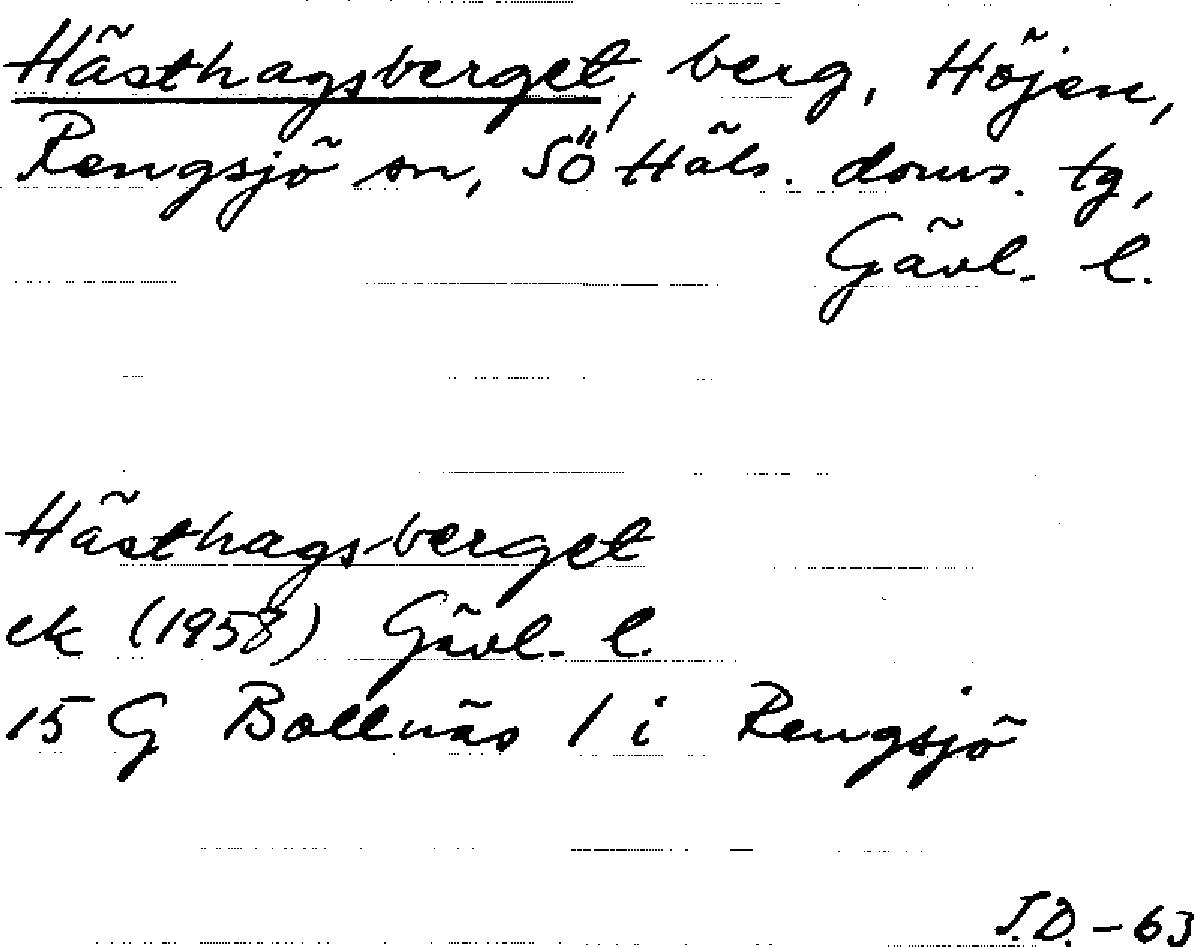 Hästhagsberget, berg, Höjen,
Rengsjö sn, Sö Häls. doms. tg,
Gävl. l.
Hästhagsberget
ek (1958) Gävl. l.
15 G Bollnäs 1 i Rengsjö
J.D. - 63